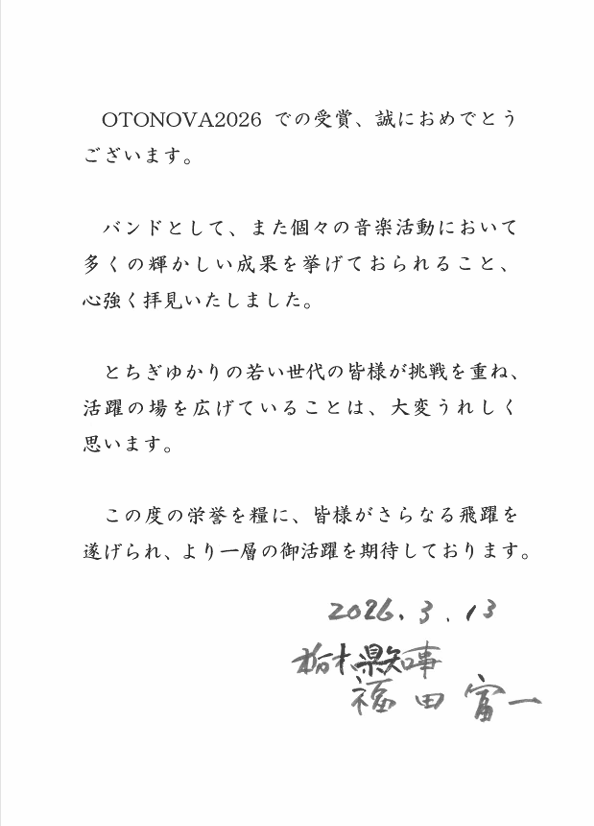 OTONOVA2026 での受賞、誠におめでとう
ございます。
バンドとして、また個々の音楽活動において
多くの輝かしい成果を挙げておられること、
心強く拝見いたしました。
とちぎゆかりの若い世代の皆様が挑戦を重ね、
活躍の場を広げていることは、大変うれしく
思います。
この度の栄誉を糧に、皆様がさらなる飛躍を
遂げられ、より一層の御活躍を期待しております。
2026.3.13
栃木県知事
福田富一